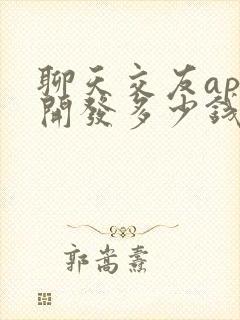 聊天交友ap
開發多少錢
郭嵩燾